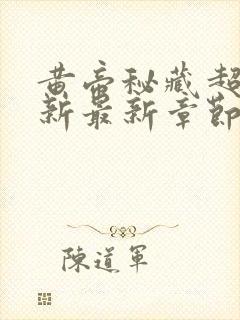 黄帝秘藏超
新最新章節
陳道軍